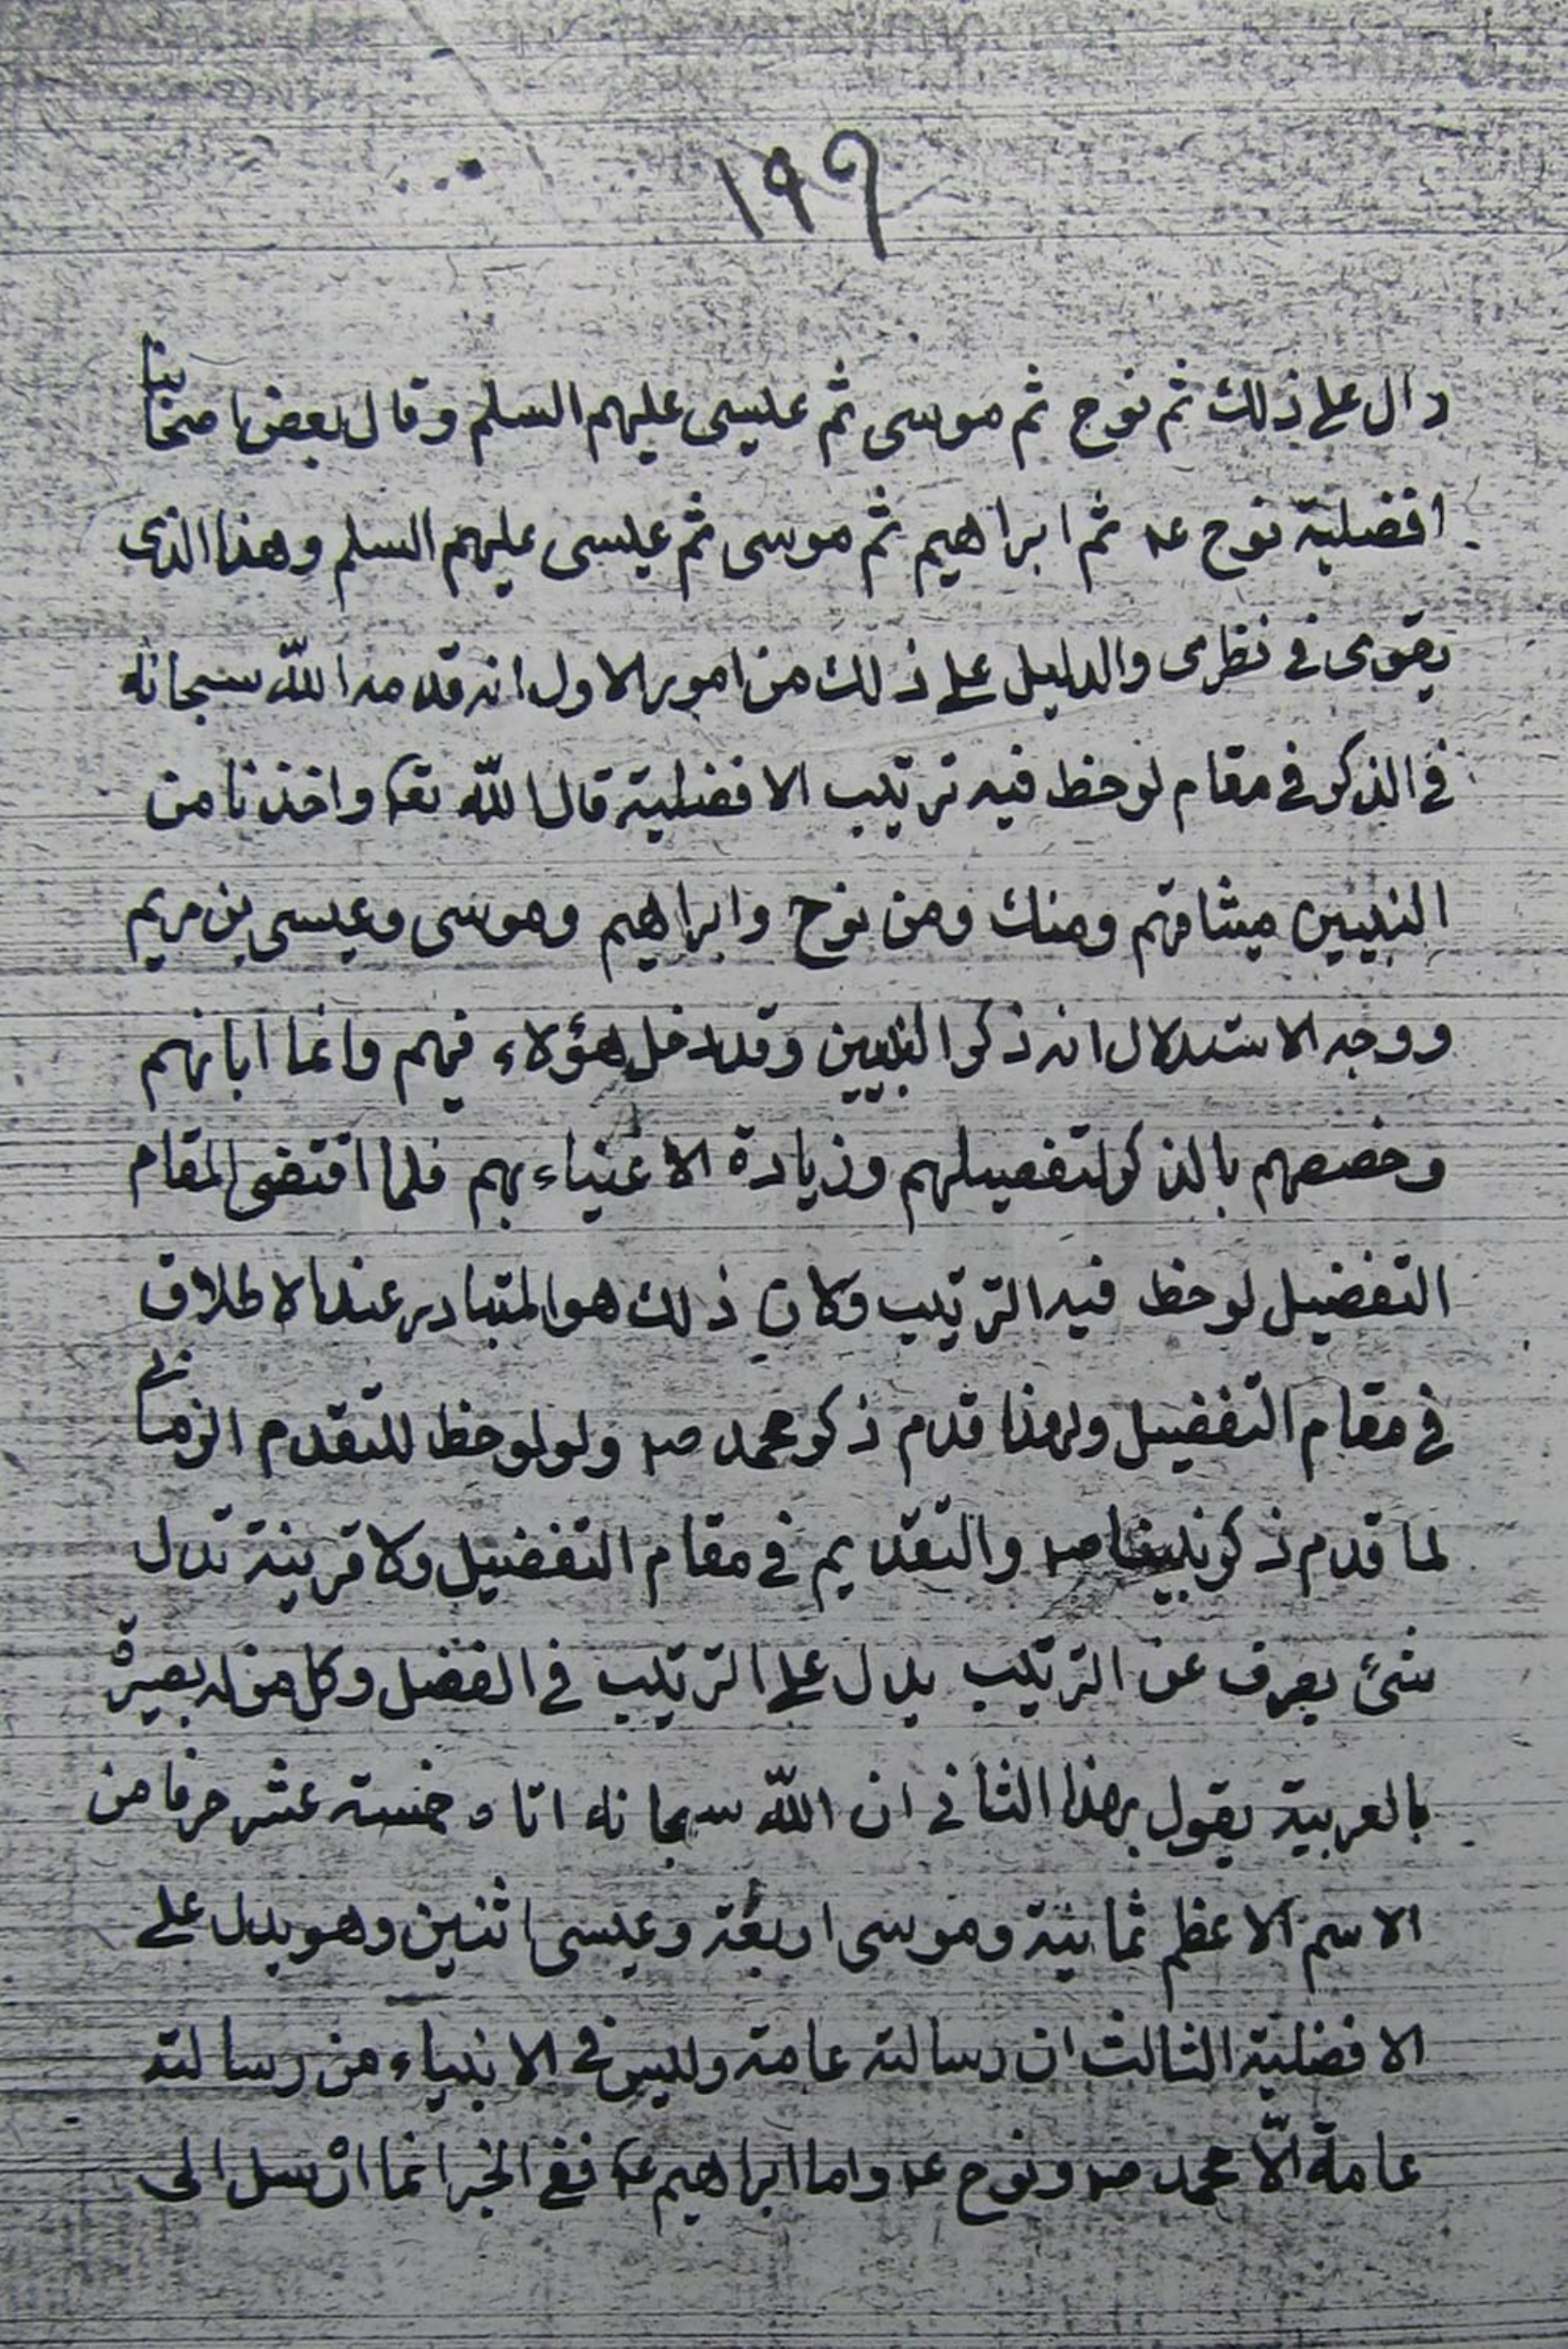 ١٩٩
دال على ذلك ثم نوح ثم موسى ثم عليسى عليهم السلم وقال بعض اصحابنا
افضلية نوح عه ثم ابراهيم ثم موسى ثم عيسى عليهم السلم وهذا الذى
يقوى فى نظرى والدليل على ذلك من امور الاول انه قدمه الله سبحانه
فى الذكر فى مقام لوحظ فيه ترتيب الافضلية قال الله تعه واخذنا من
النبيين ميثاقهم ومنك ومن نوح وابراهيم وموسى وعيسى بن مريم
ووجه الاستدلال انه ذكر النبيين وقد دخل هؤلاء فيهم وانما ابانهم
وخصصهم بالذكر لتفصيلهم وزيادة الاعتناء بهم فلما اقتضى المقام
التفضيل لوحظ فيه الترتيب وكان ذلك هو المتبادر عند الاطلاق
فى مقام التفضيل ولهذا قدم ذكر محمد صه ولو لوحظ للتقدم الزمانى
لما قدم ذكر نبينا صه والتقديم فى مقام التفضيل ولا قرينة تدل
شئ يصرف عن الترتيب يدل على الترتيب فى الفضل وكل من له بصيرة
بالعربية يقول بهذا الثانى ان الله سبحانه اتاه خمسة عشر حرفا من
الاسم الاعظم ثمانية وموسى اربعة وعيسى اثنين وهو يدل على
الافضلية الثالث ان رسالته عامة وليس فى الانبياء من رسالته
عامة الّا محمد صه ونوح عه واما ابراهيم عه ففى الخبر انما ارسل الى